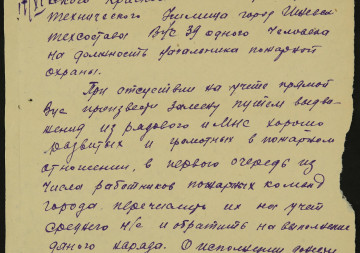 технического Училища город
техсостава Вус 39 одного человека
на должность начальника пожарной
охраны.
При отсутствии на учете прямой
Вус произвести замену путем выдви
жения из рядового и МНС хорошо
развитых и грамотных в пожарном
отношении, в первого очередь из
числа работников пожарных команд
города перечислить их на учет
среднего н/с и обратить на выполнение
даного наряда. О исполнении